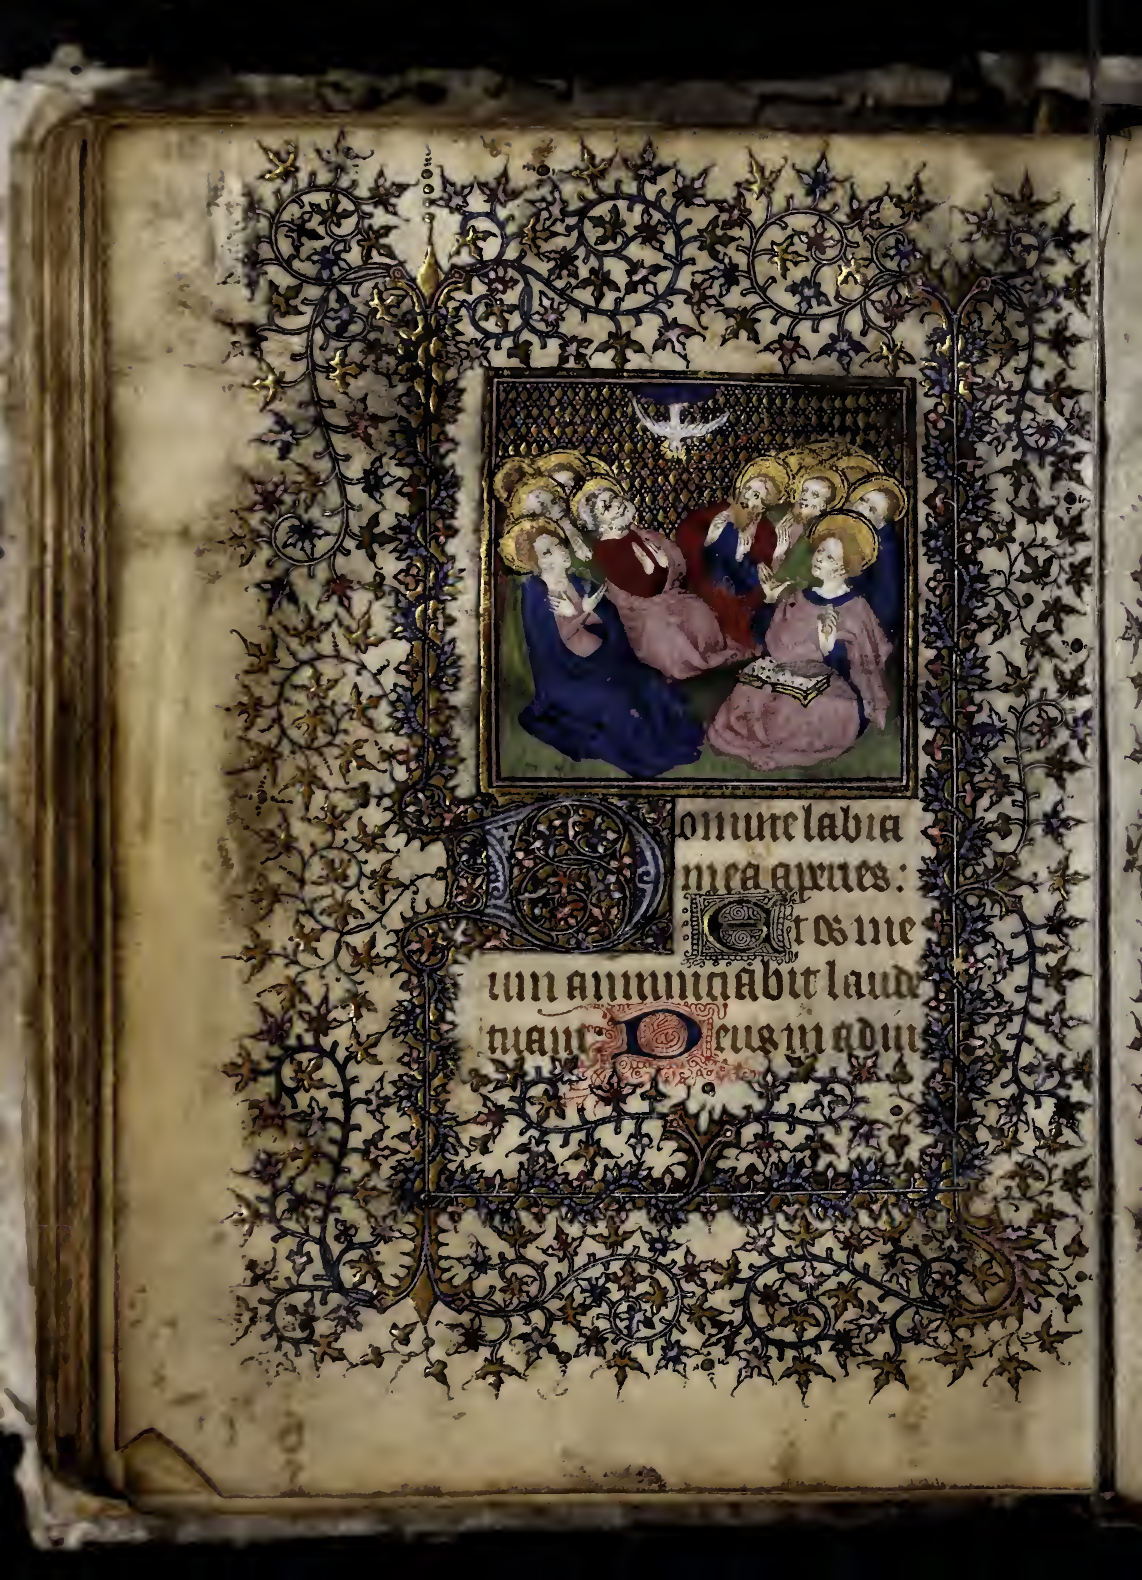 Domine labia
mea aperies:
Et os me
um annunciabit laudē
tuam Deus in adiu